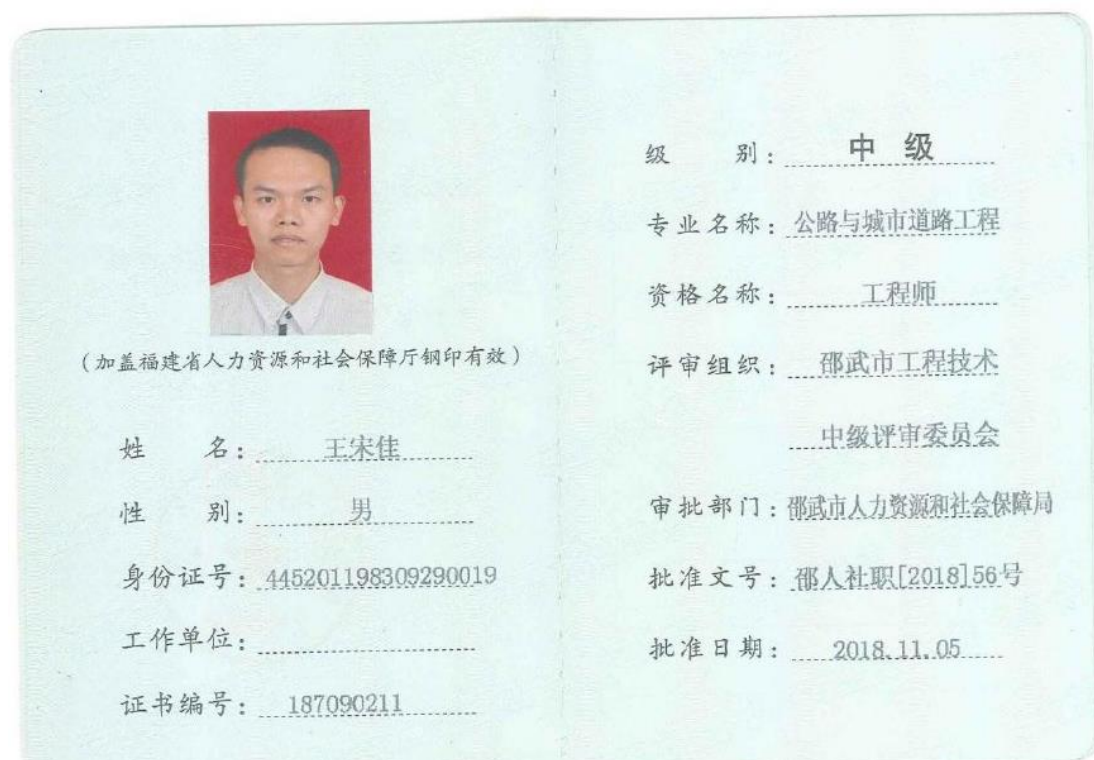 (加盖福建省人力资源和社会保障厅钢印有效)
姓 名: 王宋佳
性 别: 男
身份证号: 445201198309290019
工作单位:
证书编号: 187090211
级 别: 中 级
专业名称: 公路与城市道路工程
资格名称: 工程师
评审组织: 邵武市工程技术
中级评审委员会
审批部门: 邵武市人力资源和社会保障局
批准文号: 邵人社职[2018]56号
批准日期: 2018.11.05